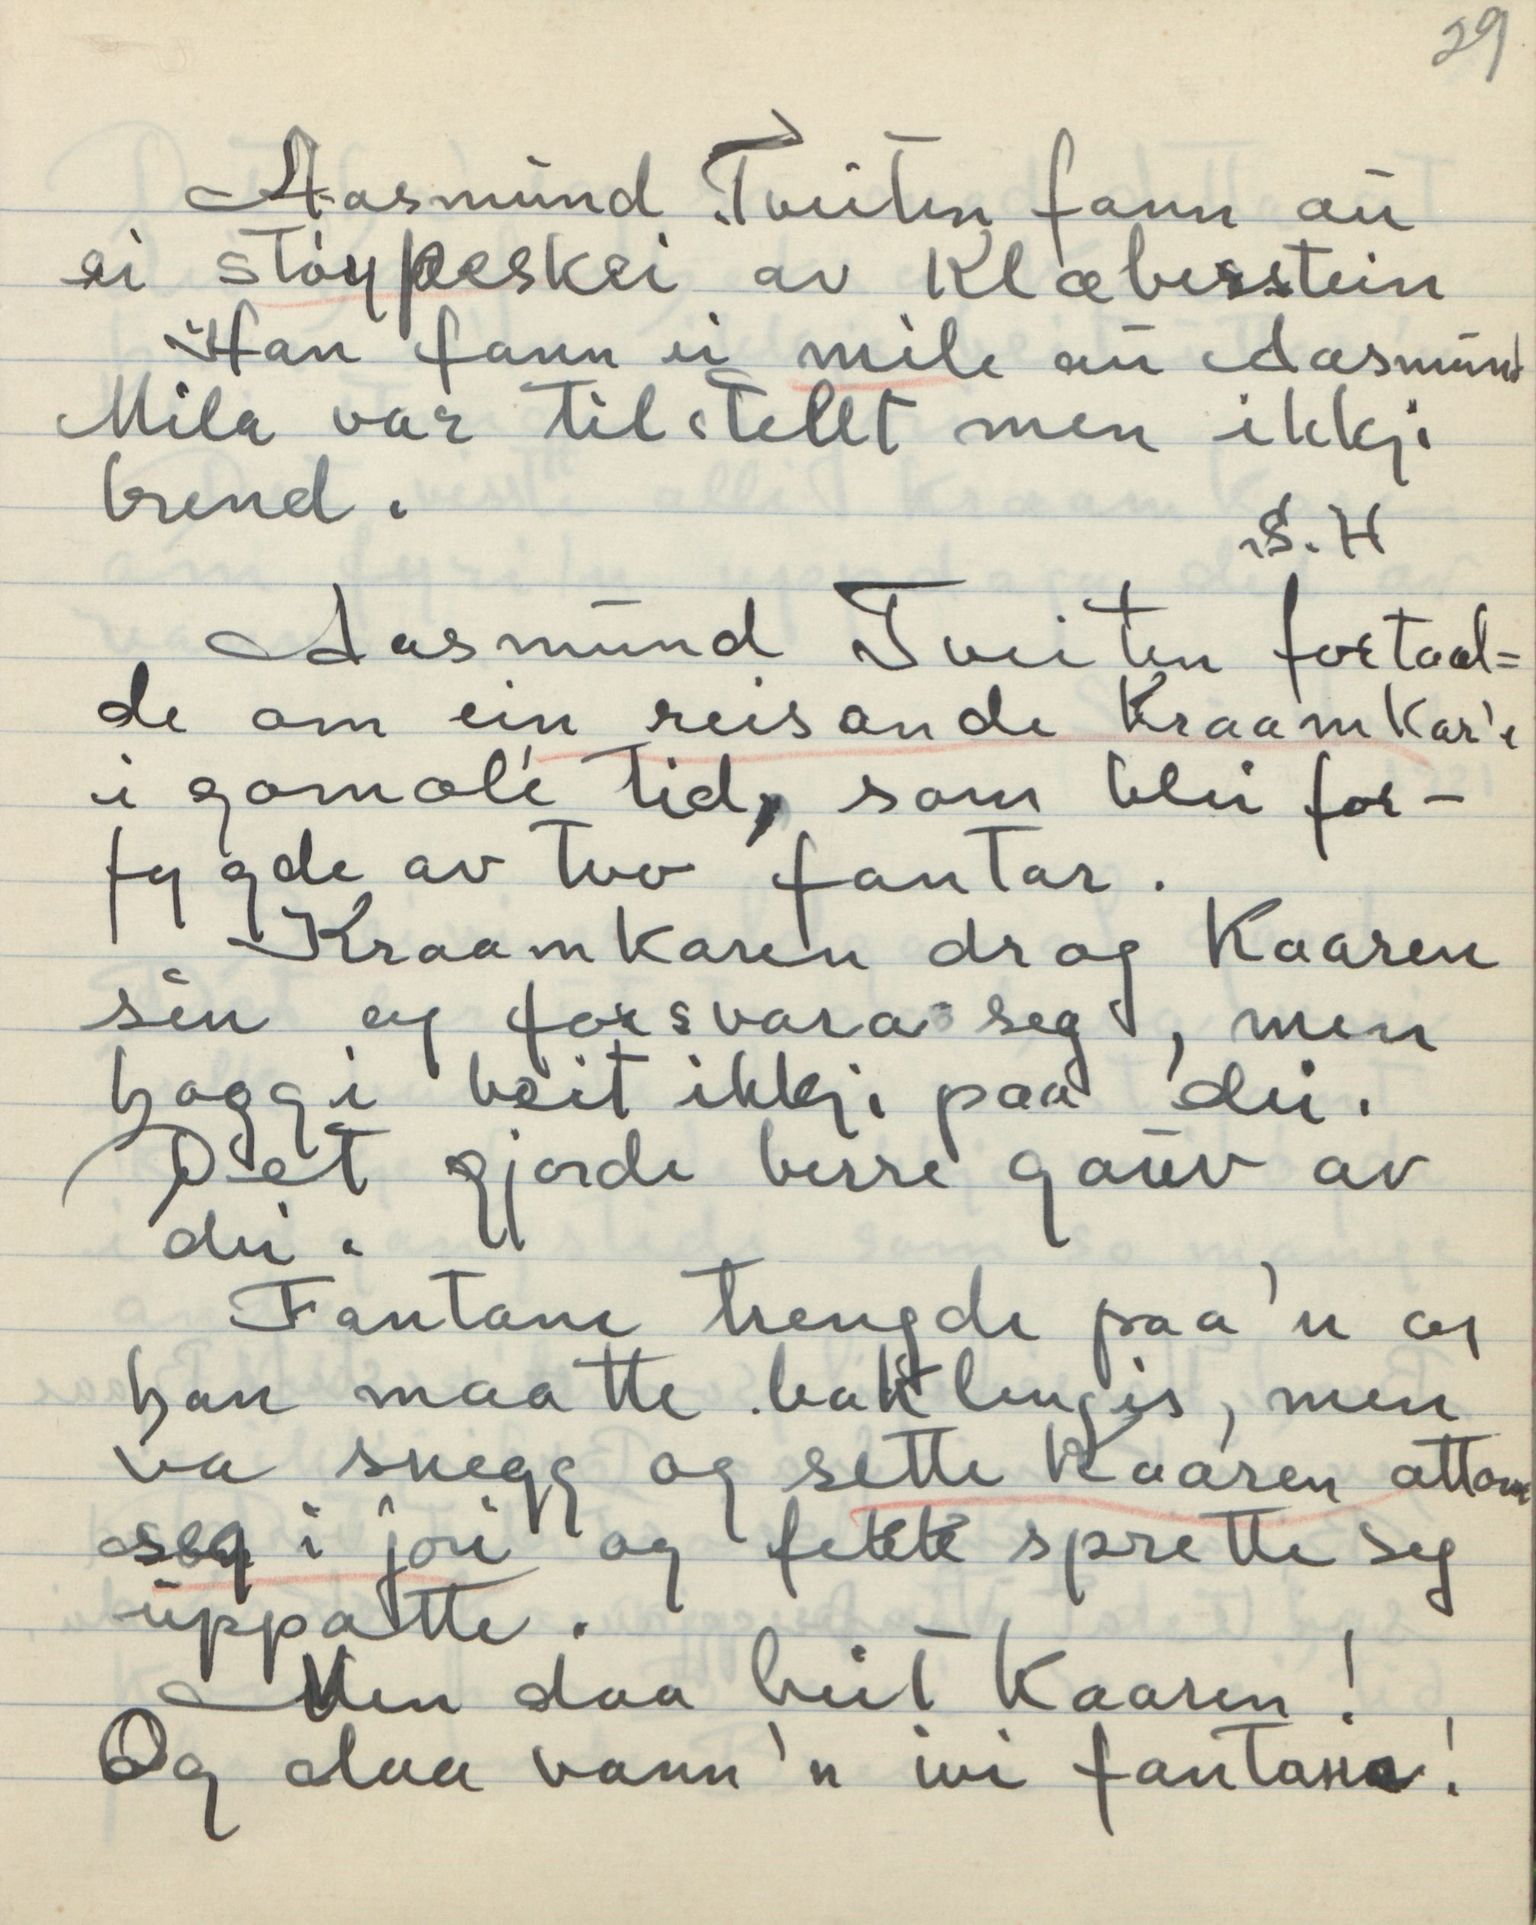 29
Aasmund Tveiten fann au
ei støypeskei av Klæbersstein
Han fann ei mile au Aasmund
Mila var tilstellt men ikkji
brend.
S.H
Aasmund Tveiten fortaal=
de om ein reisande Kraamkar'e
i gomole tid, som blei for-
fygde av tvo fantar.
Kraamkaren drog Kaaren
sin og forsvara seg, men
haggi beit ikkji paa dei.
Det gjorde berre gauv av
dei.
Fantane trengde paa'n og
han maatte baklengis, men
va snegg og sette Kaaren attom
seg i jori og fekk sprette seg
uppatte.
Men daa beit Kaaren!
Og daa vann'n ivi fantane!